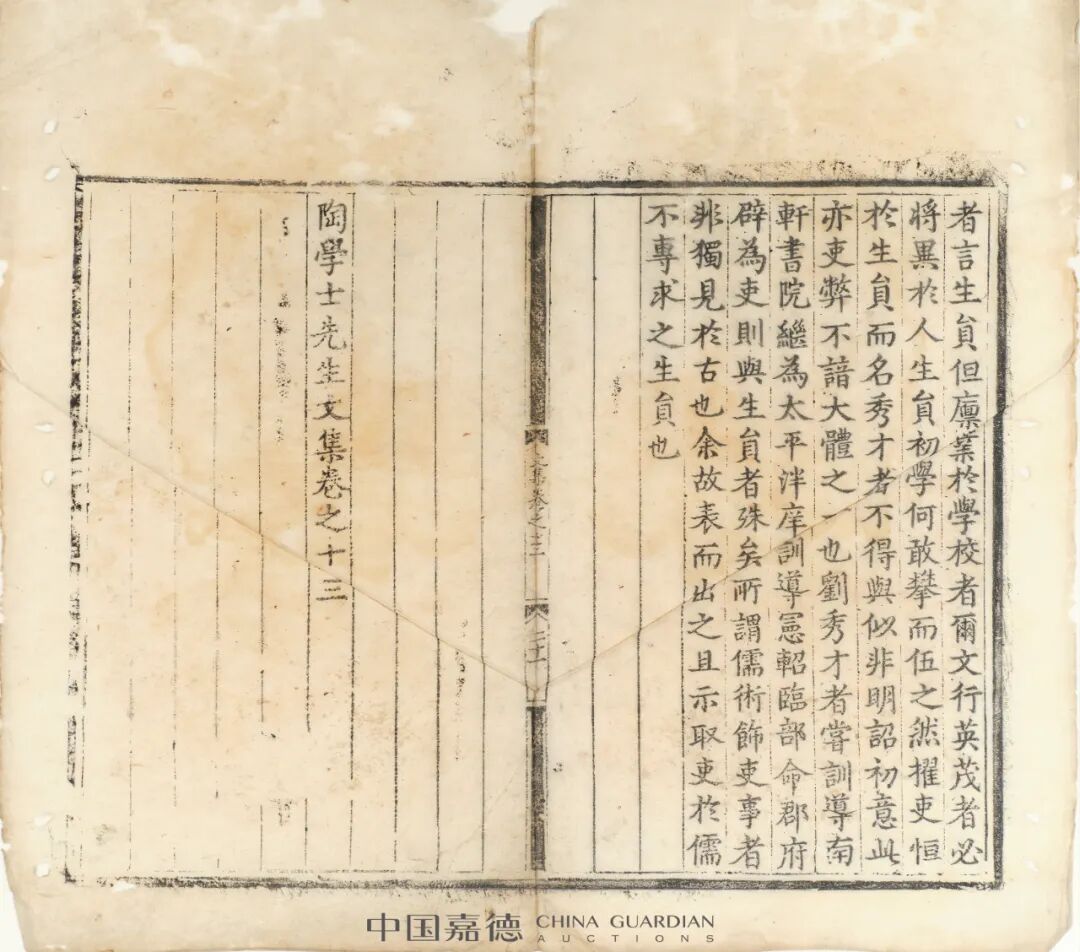 者言生員但廩業於學校者爾文行英茂者必
將異於人生員初學何敢攀而伍之然擢吏恒
於生員而名秀才者不得與似非明詔初意此
亦吏弊不諳大體之一也劉秀才者嘗訓導南
軒書院繼為太平泮庠訓導憲軺臨部命郡府
辟為吏則與生員者殊矣所謂儒術飾吏事者
非獨見於古也余故表而出之且示取吏於儒
不專求之生員也
文集卷之十三
二十一
陶學士先生文集卷之十三
中国嘉德 CHINA GUARDIAN
AUCTIONS